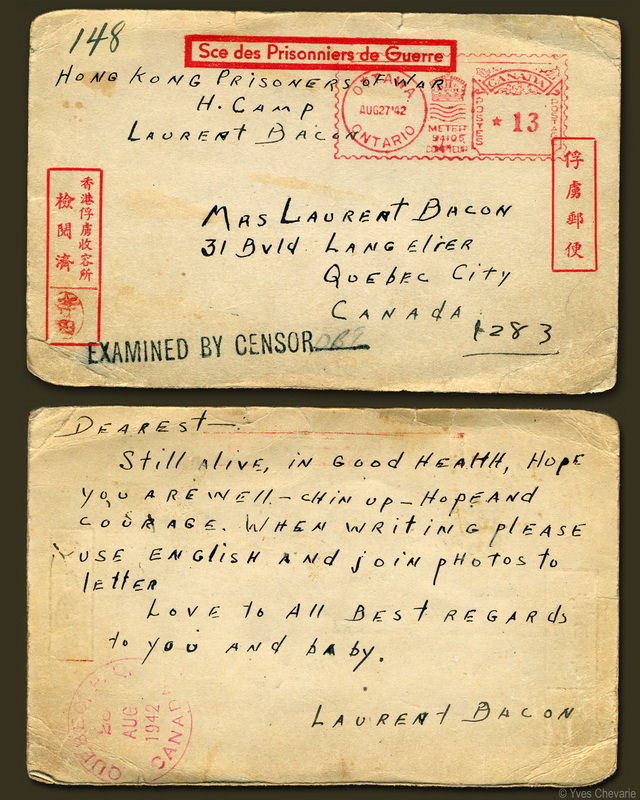 148
Sce des Prisonniers de Guerre
HONG KONG PRISONERS OF WAR
H. CAMP
LAURENT BACON
OTTAWA
AUG 27 '42
ONTARIO
METER
COMPTEUR
CANADA
POSTES
POSTAGE
* 13
俘虜郵便
香港俘虜收容所
檢閱濟
MRS LAURENT BACON
31 Bvld LANGELIER
QUEBEC CITY
CANADA
1283
EXAMINED BY CENSOR
DEAREST—
Still Alive, IN GOOD HEALTH, HOPE
YOU ARE WELL - CHIN UP - HOPE AND
COURAGE. WHEN WRITING PLEASE
USE ENGLISH AND join PHOTOS to
letter
LOVE to All BEST REGARDS
to YOU AND bAby.
AUG
1942
CANADA
LAURENT BACON
© Yves Chevarie